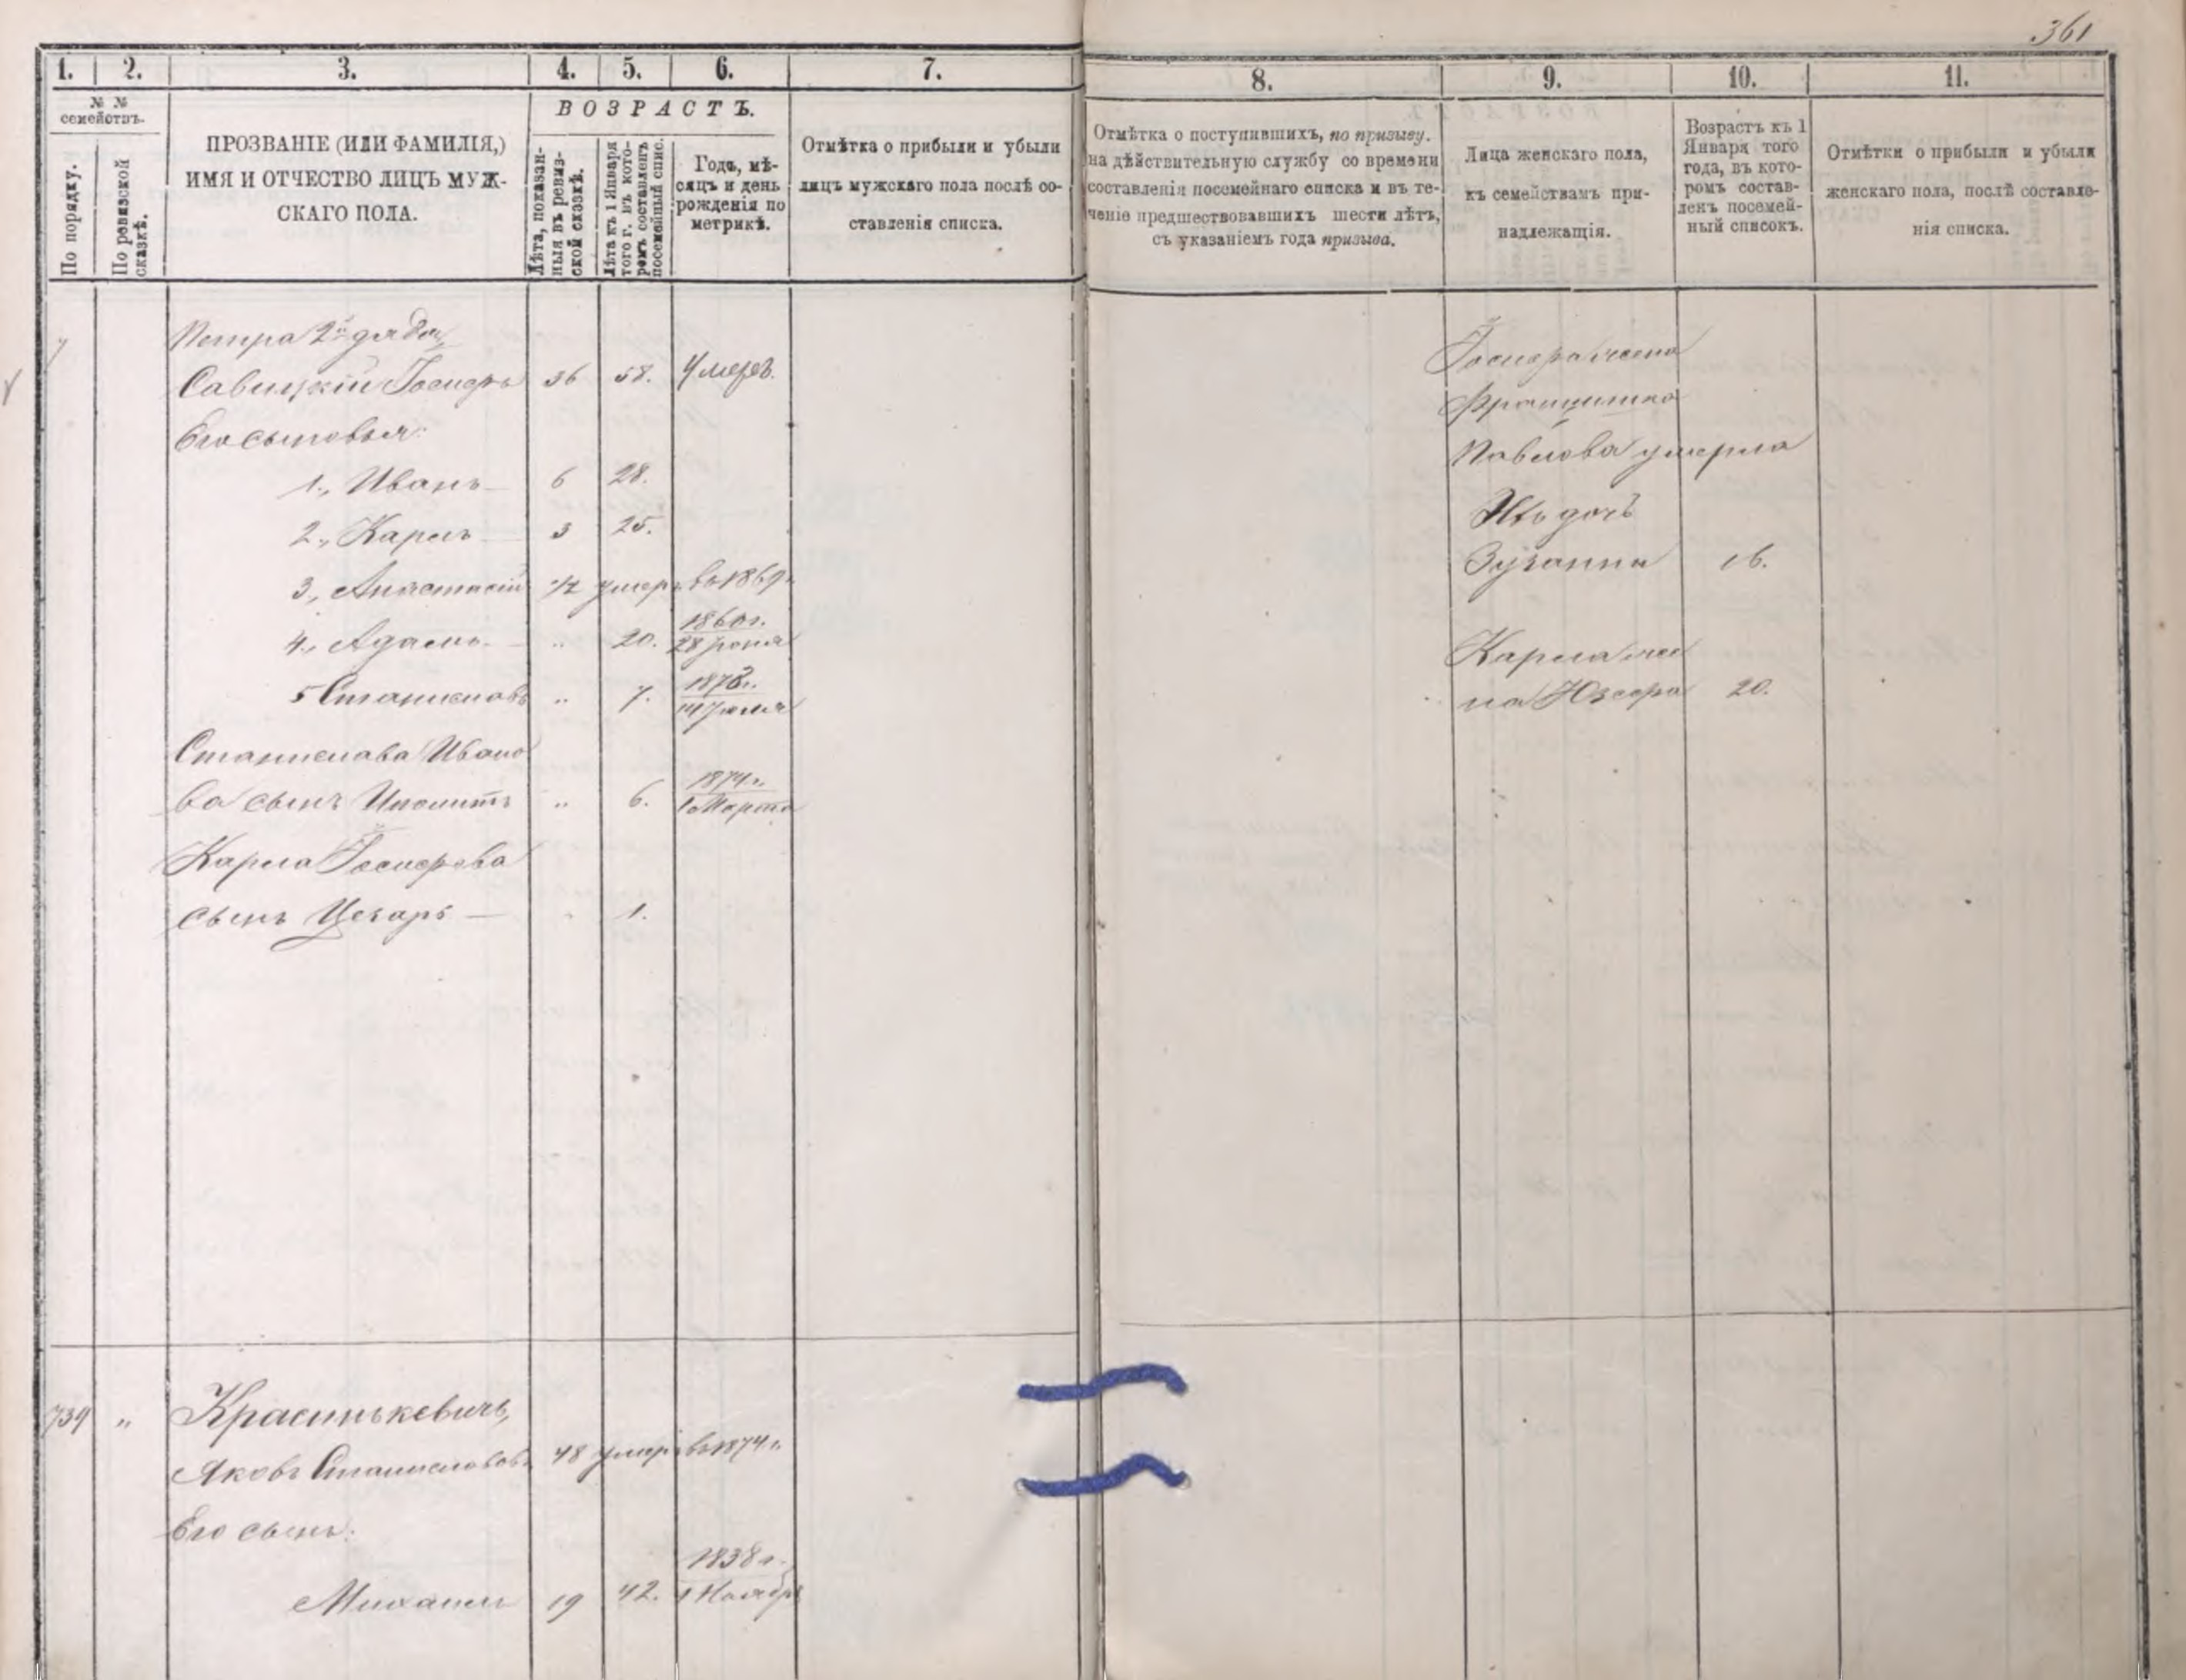 361
1. 2. 3. 4. 5. 6. 7. 8. 9. 10. 11.
№ №
семействъ.
По порядку.
По ревизской
сказкѣ.
ПРОЗВАНІЕ (ИЛИ ФАМИЛІЯ,)
ИМЯ И ОТЧЕСТВО ЛИЦЪ МУЖ-
СКАГО ПОЛА.
ВОЗРАСТЪ.
Лѣта, показан-
ныя въ ревиз-
ской сказкѣ.
Лѣта къ 1 Января
того г. въ кото-
ромъ составленъ
посемейный спис.
Годъ, мѣ-
сяцъ и день
рожденія по
метрикѣ.
Отмѣтка о прибыли и убыли
лицъ мужскаго пола послѣ со-
ставленія списка.
Отмѣтка о поступившихъ, по призыву.
на дѣйствительную службу со времени
составленія посемейнаго списка и въ те-
ченіе предшествовавшихъ шести лѣтъ,
съ указаніемъ года призыва.
Лица женскаго пола,
къ семействамъ при-
надлежащія.
Возрастъ къ 1
Января того
года, въ кото-
ромъ состав-
ленъ посемей-
ный списокъ.
Отмѣтки о прибыли и убыли
женскаго пола, послѣ составле-
нія списка.
Петра 2й дядя
Савицкій Іосифъ 36 58. Умеръ.
Его сыновья:
1., Иванъ 6 28.
2., Карлъ 3 25.
3, Анастасій 1/2 умеръ въ 1869
4., Адамъ „ 20. 1860 г.
28
5 Станиславъ „ 7.
14 Іюля
Станислава Ивано
ва сынъ Иполитъ „ 6. 1874 г.
1 Марта
Карла Іосифова
сынъ Цезарь „ 1.
Іосифа жена
Францишка
Павлова умерла
Ихъ дочь
Зузанна 16.
Карла же
на Юзефа 20.
739 „ Красинькевичъ,
Яковъ Станиславовъ 48 умеръ въ 1874 г.
Его сынъ:
Михаилъ 19 42. 1838 г.
1 Ноября